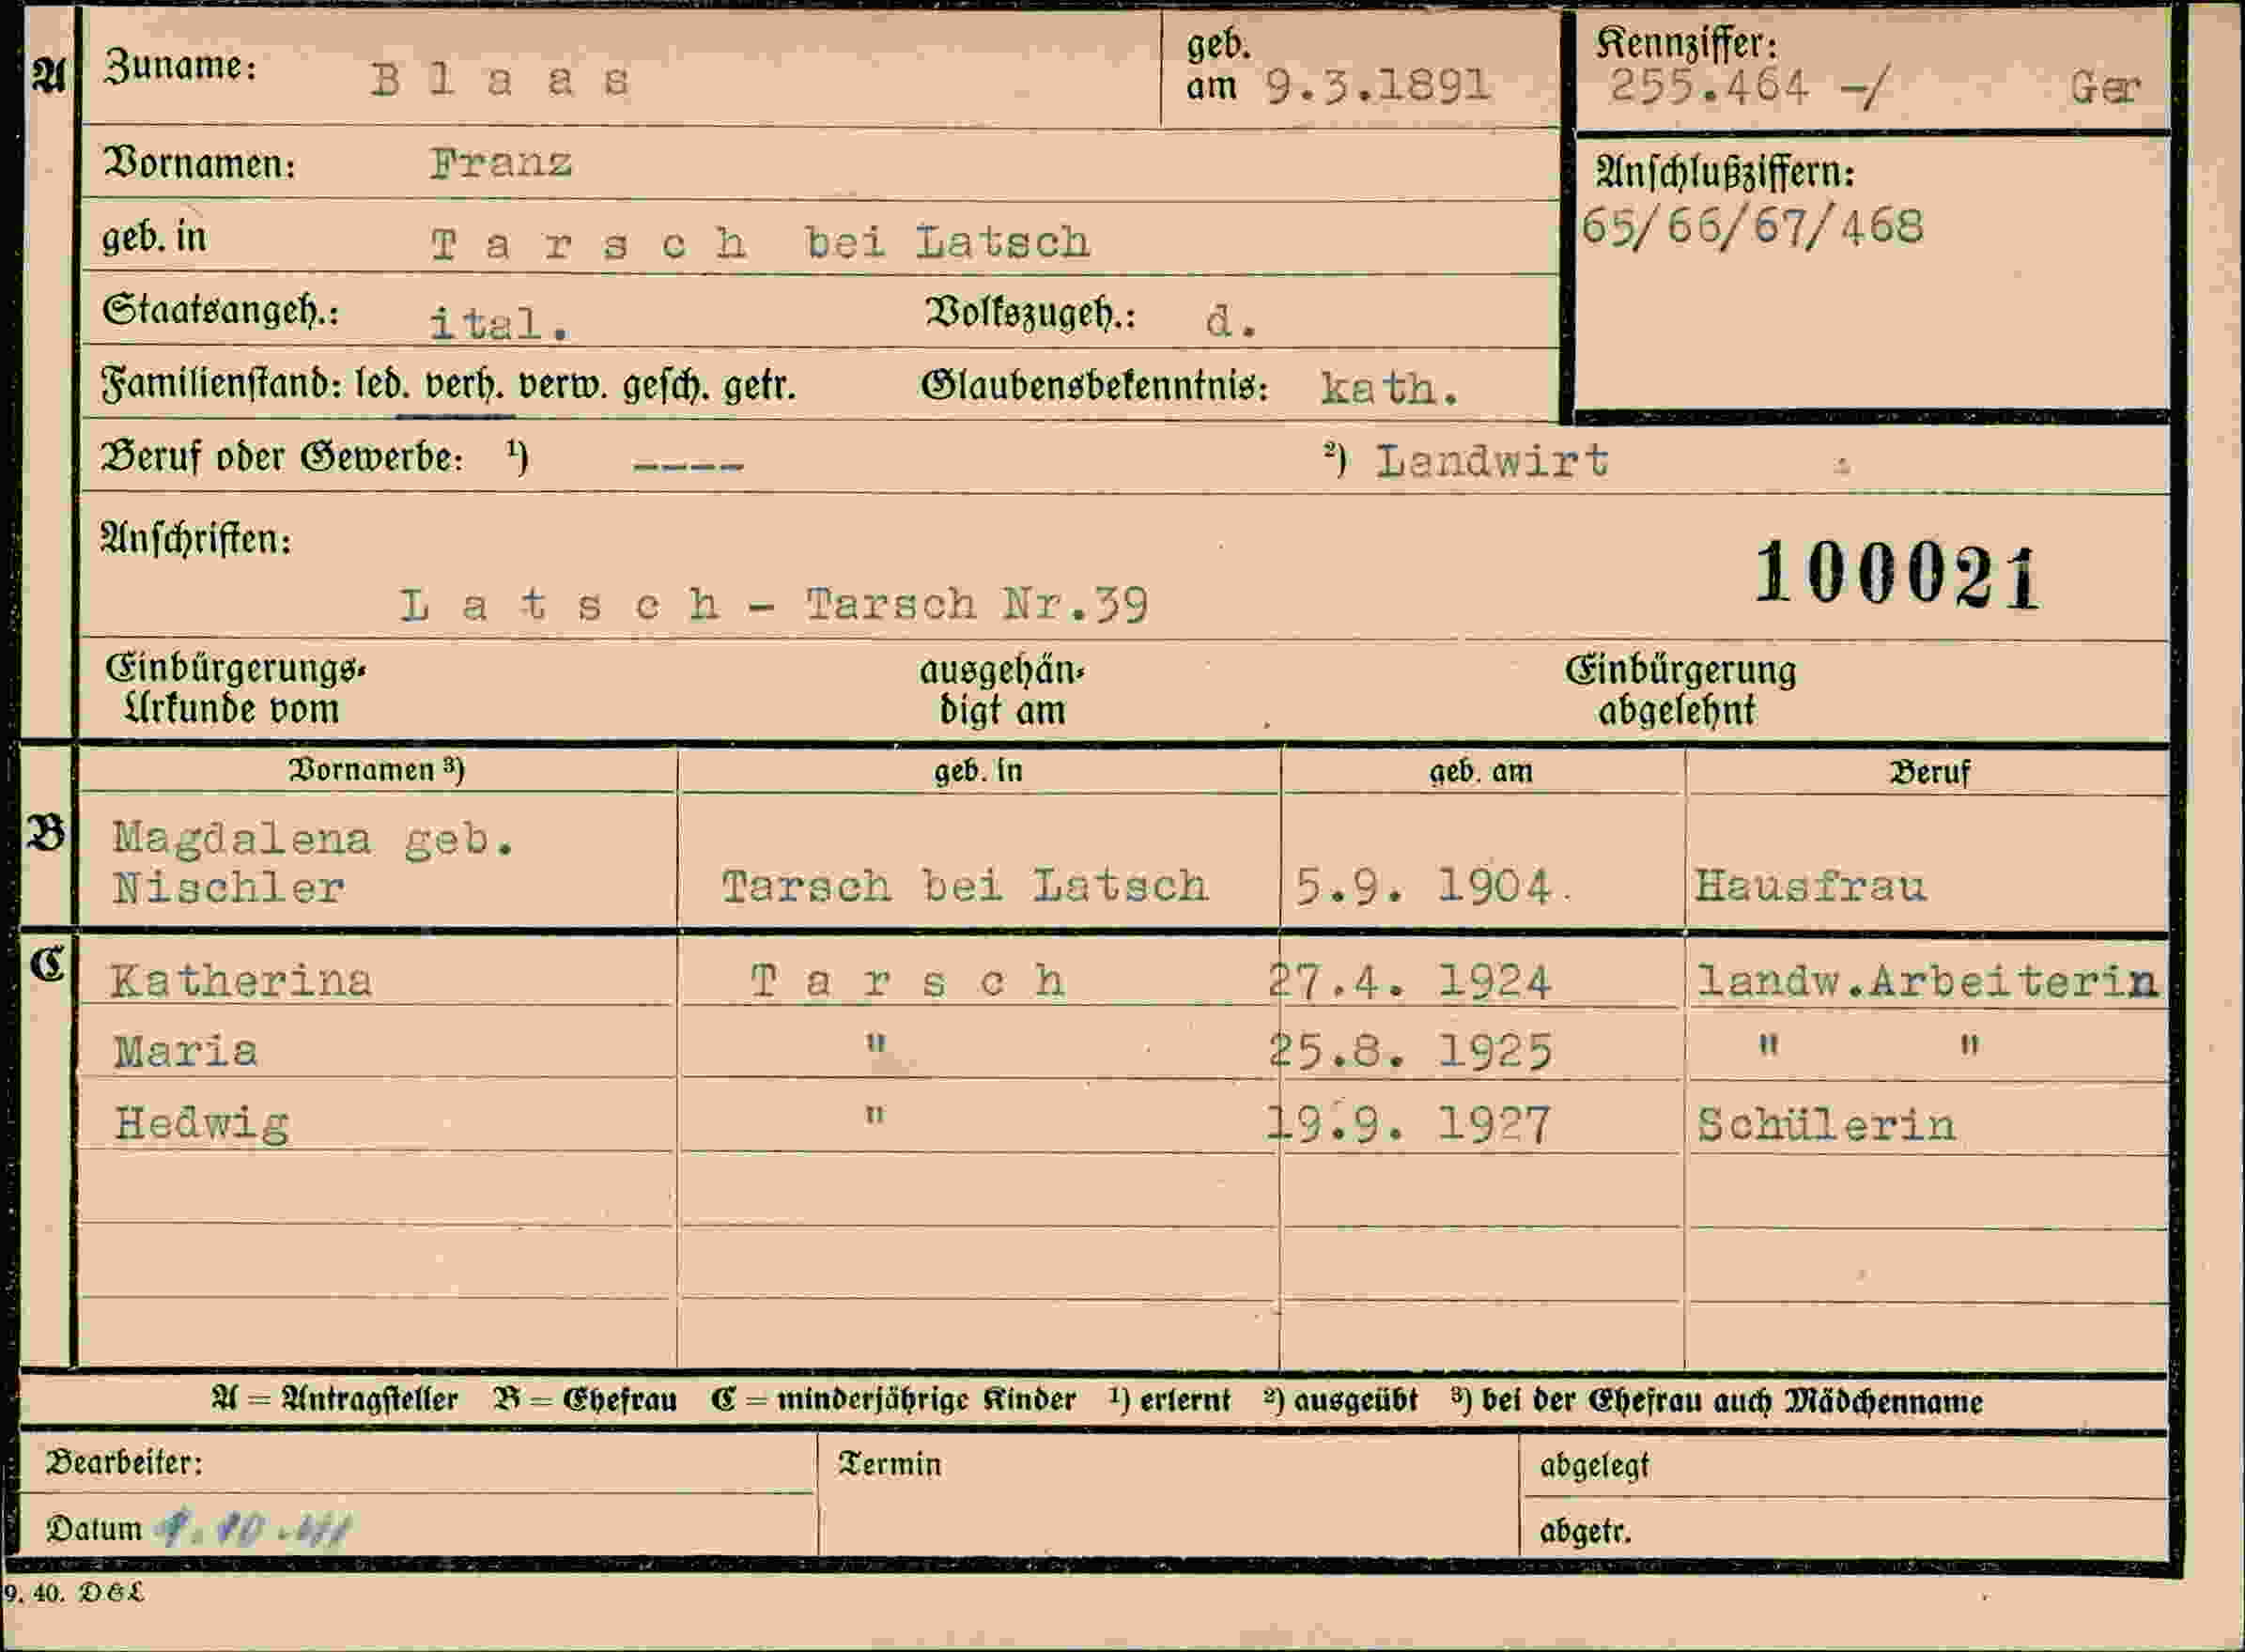 A Zuname: B l a a s geb. am 9.3.1891 Kennziffer: 255.464 -/ Ger
Vornamen: Franz
Anschlußziffern:
65/66/67/468
geb. in T a r s c h bei Latsch
Staatsangeh.: ital. Volkszugeh.: d.
Familienstand: led. verh. verw. gesch. getr. Glaubensbekenntnis: kath.
Beruf oder Gewerbe: ¹) ---- ²) Landwirt
Anschriften:
100021
L a t s c h - Tarsch Nr.39
Einbürgerungs- ausgehän- Einbürgerung
Urkunde vom digt am abgelehnt
Vornamen ³) geb. in geb. am Beruf
B Magdalena geb.
Nischler Tarsch bei Latsch 5.9. 1904. Hausfrau
C Katherina T a r s c h 27.4. 1924 landw.Arbeiterin
Maria " 25.8. 1925 " "
Hedwig " 19.9. 1927 Schülerin
A = Antragsteller B = Ehefrau C = minderjährige Kinder ¹) erlernt ²) ausgeübt ³) bei der Ehefrau auch Mädchenname
Bearbeiter: Termin abgelegt
Datum abgetr.
9. 40. DGL